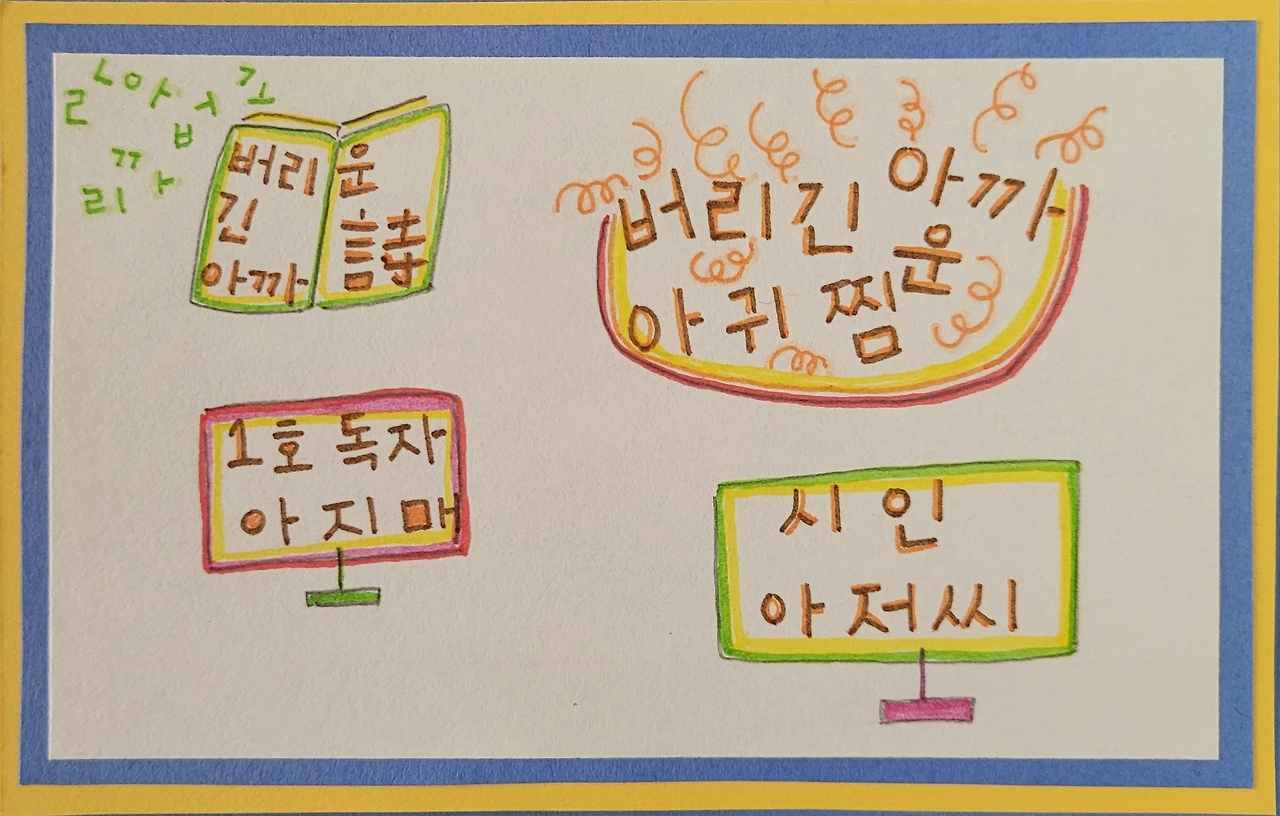 ㄹ ㄴ ㅇ ㅏ ㅂ ㅅ ㄱ ㅗ
ㄲ ㅏ
리
버리
긴
아까
운
버리긴 아까
운
아귀찜
1호 독자
아지매
시인
아저씨